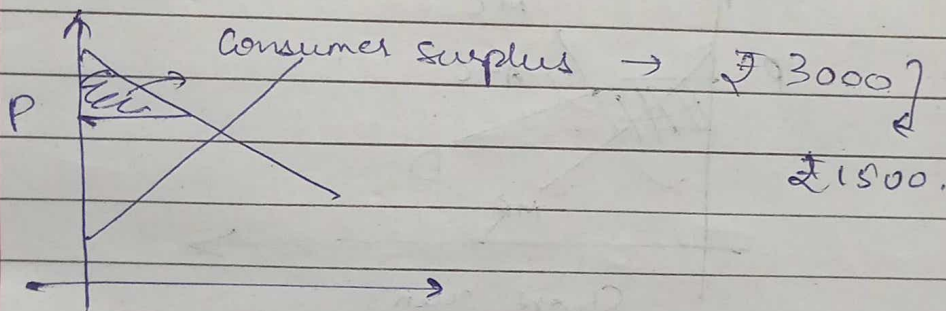 Consumer Surplus → ₹ 3000
P
₹1500.